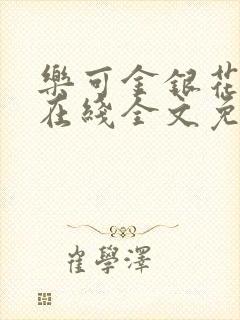 樂可金銀花
在綫全文免
崔學澤